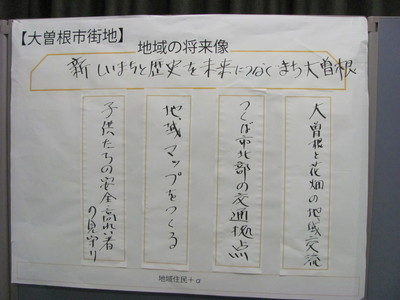 【大曽根市街地】
地域の将来像
新しいまちと歴史を未来につなぐまち大曽根
大曽根と花畑の地域交流
つくば市北部の交通拠点
地域マップをつくる
子供たちの安全高れい者
の見守り
地域住民+α